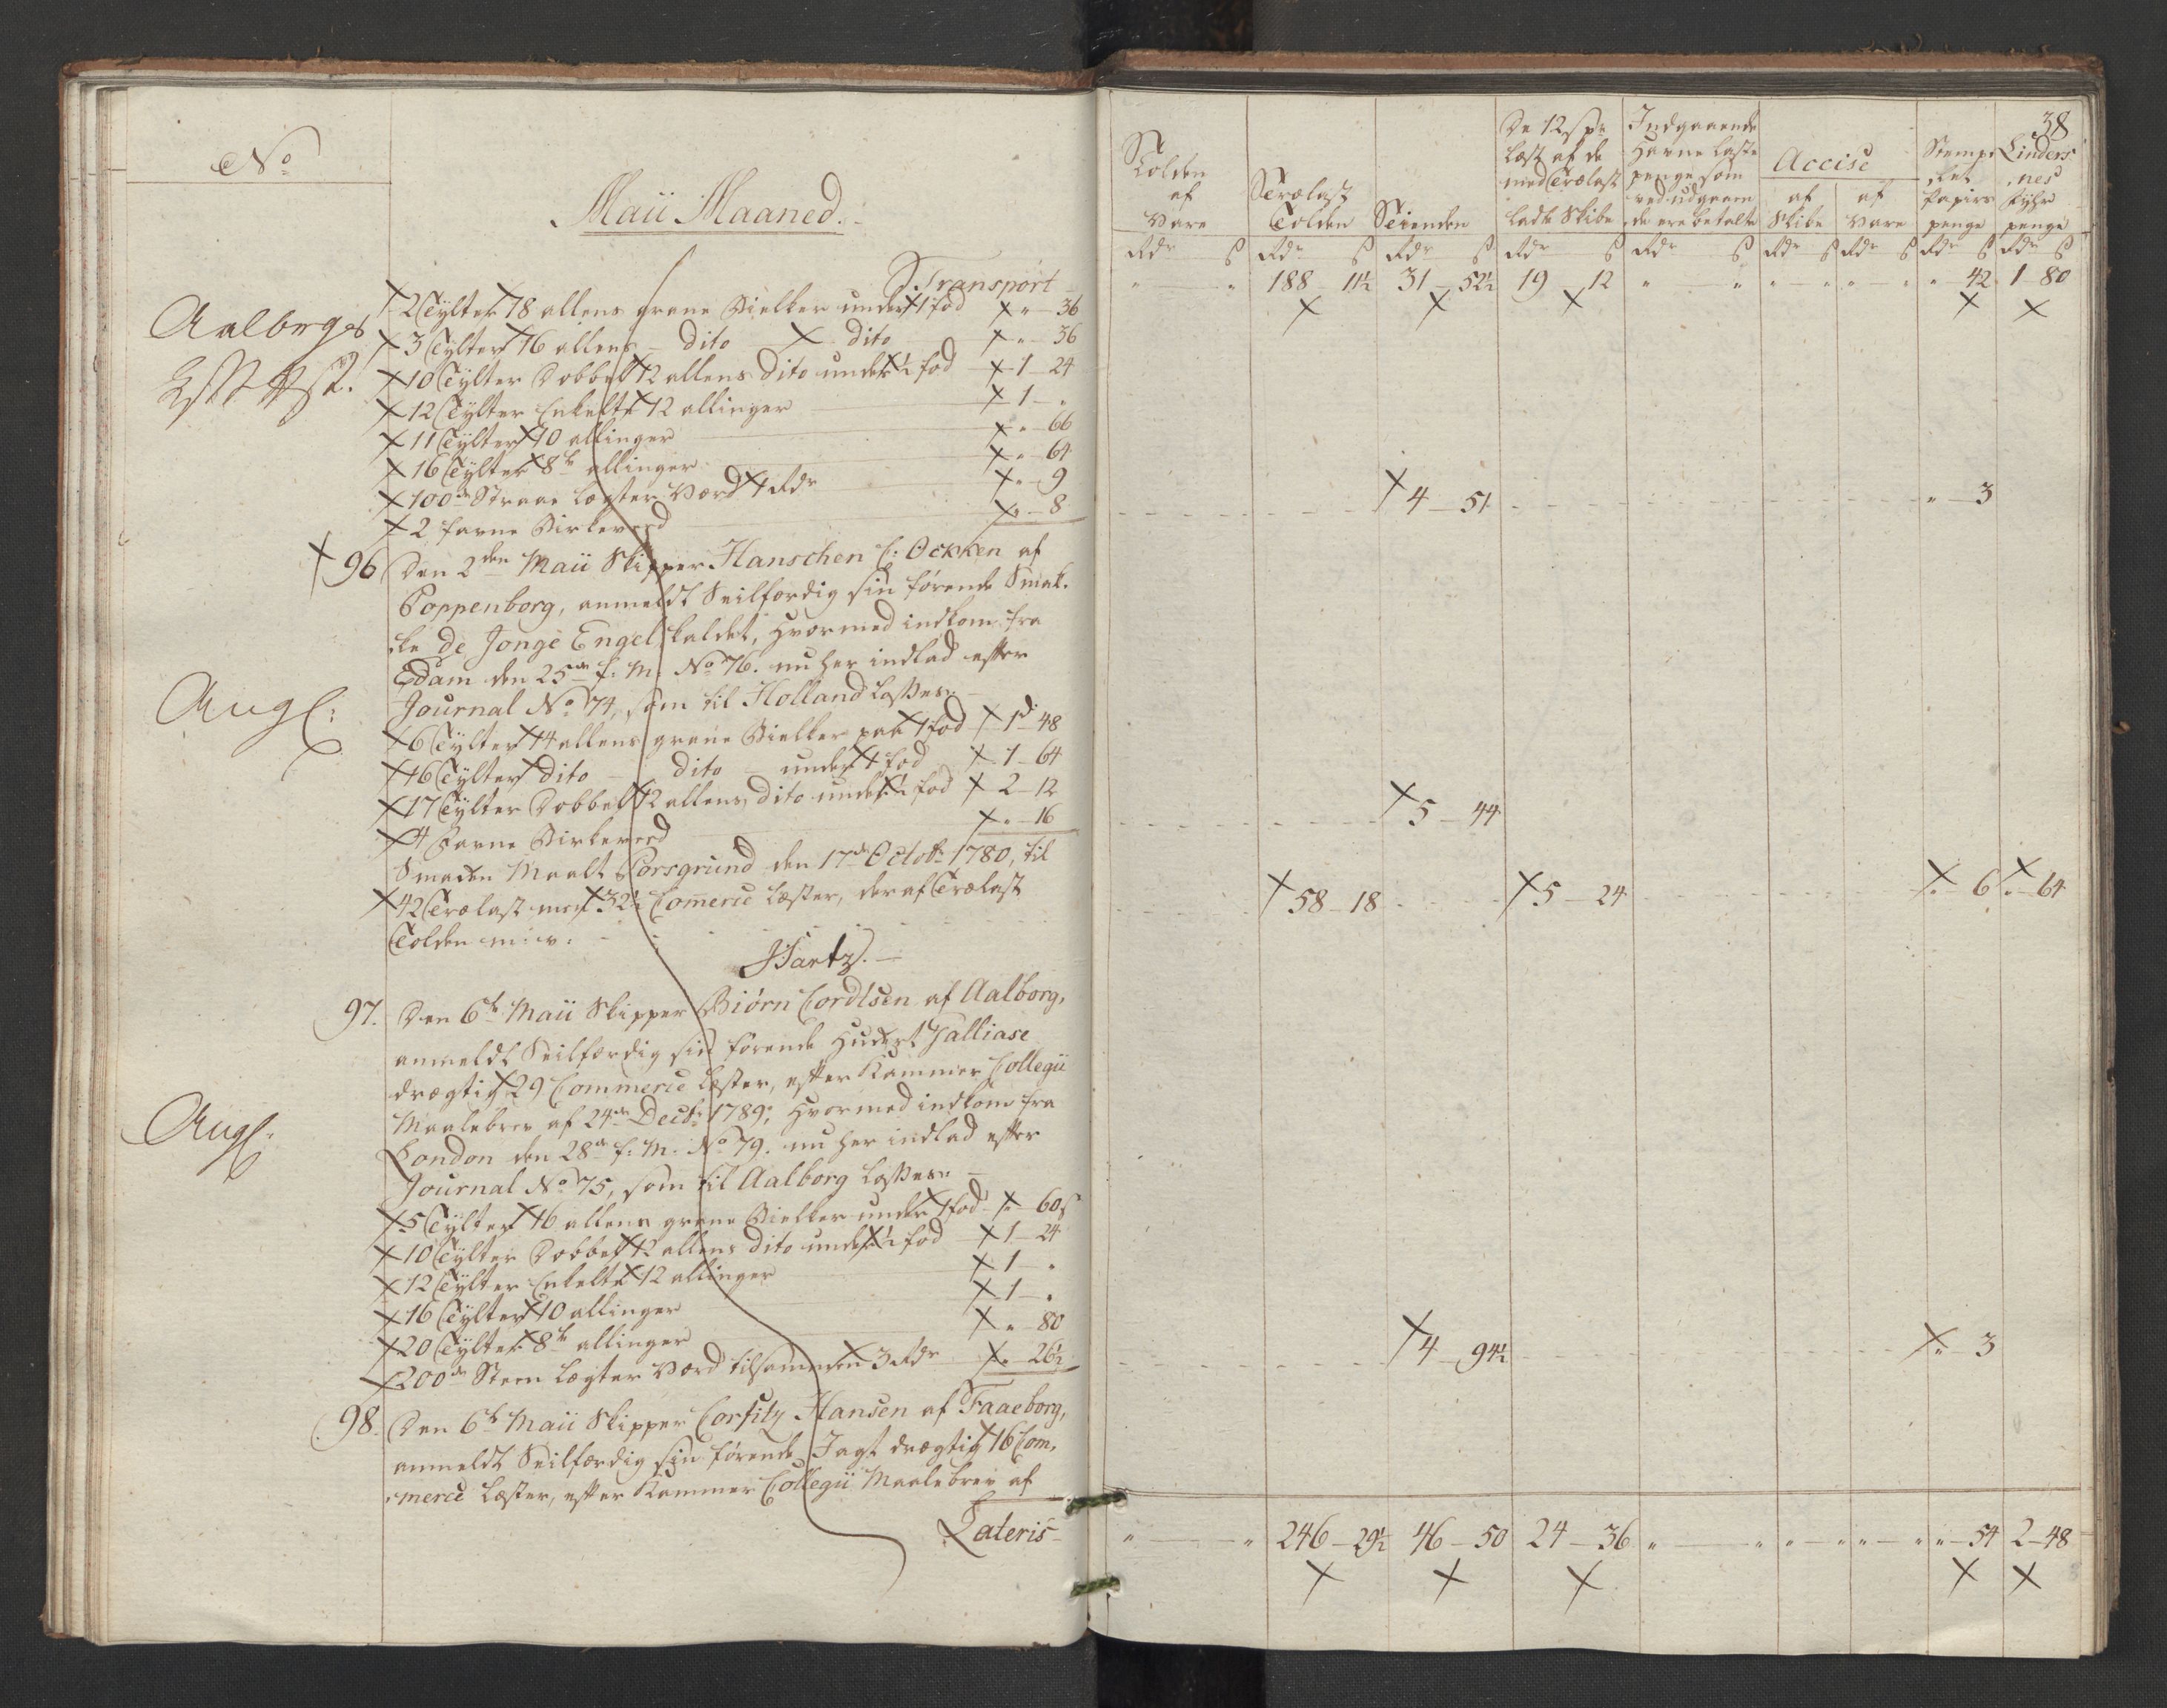 No
Maii Maaned.
Transport
Aalborgs
2 Tylter 18 allens grane Bielker under 1 fod " 36
3 Tylter 16 allens - dito - dito " 36
10 Tylter Dobbelt 12 allens dito under ½ fod 1 24
12 Tylter Enkelte 12 allinger 1 "
11 Tylter 10 allinger " 66
16 Tylter 8te allinger " 64
100de Straae Lægter Værd 1 Rdr " 9
2 favne Birkeved " 8
96 Den 2den Maii Skipper Hanschen C: Ockken af
Poppenborg, anmeldt Seilfærdig sin førende Smak-
ke de Jonge Engel kaldet, hvormed indkom fra
Edam den 25de f. M. No 76. nu her indlad efter
Journal No 74, som til Holland losses.
Angl:
6 Tylter 14 allens grane Bielker paa 1 fod 1d 48
16 Tylter dito - dito - under 1 fod 1 64
17 Tylter Dobbelt 12 allens dito under ½ fod 2 12
4 Favne Birkeved " 16
Smakken Maalt Porsgrund den 17de Octobr 1780, til
42 Trælast med 32½ Comerce Læster, deraf Trælast
Tolden m: v:
Hartz.
97. Den 6te Maii Skipper Biørn Cordtsen af Aalborg,
anmeldt Seilfærdig sin førende Hukert Jalliase
drægtig 29 Commerce Læster, efter Kammer Collegii
Maalebrev af 24de Decbr 1789, hvormed indkom fra
Angl:
London den 28de f. M. No 79. nu her indlad efter
Journal No 75, som til Aalborg losses.
5 Tylter 16 allens grane Bielker under 1 fod " 60 ß
10 Tylter Dobbelt 12 allens dito under ½ fod 1 24
12 Tylter Enkelte 12 allinger 1 "
16 Tylter 10 allinger 1 "
20 Tylter 8te allinger " 80
200de Steen Lægter Værd tilsammen 3 Rdr " 26½
98. Den 6te Maii Skipper Corfitz Hansen af Faaeborg,
anmeldt Seilfærdig sin førende Jagt drægtig 16 Com-
merce Læster, efter Kammer Collegii Maalebrev af
Lateris
38
Tolden af Vare
Trælast Tolden
Tienden
De 12 sp: Læst af de med Trælast ladte Skibe
Indgaaende Havne Laste penge som ved udgaaende ere betalte
Accise
af Skibe
af Vare
Stemplet Papiirs penge
Lindersnes Fyhr penge
Rdr ß Rdr ß Rdr ß Rdr ß Rdr ß Rdr ß Rdr ß Rdr ß Rdr ß
" " 188 11½ 31 52½ 19 12 " " " " " " " 42 1 80
4 51 " 3
5 44
58 18 5 24 " 6 " 64
4 94½ " 3
" " 246 29½ 46 50 24 36 " " " " " " " 54 2 48